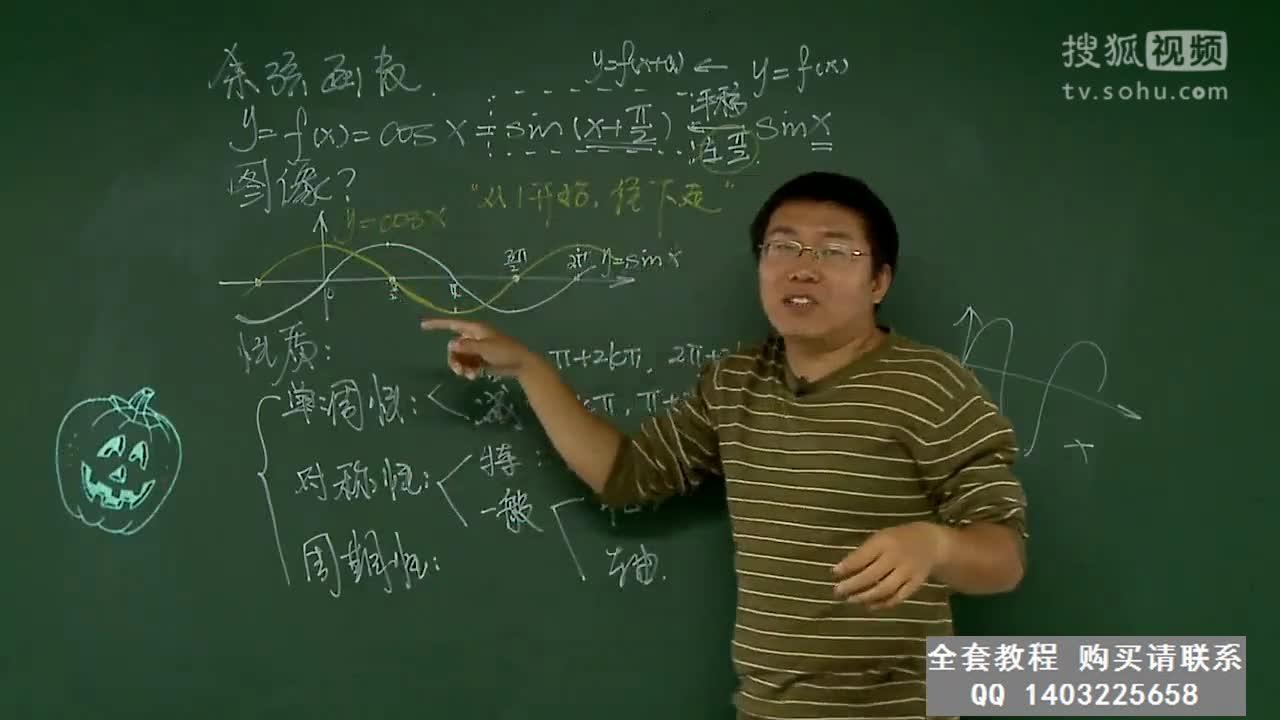 搜狐视频
tv.sohu.com
余弦函数.
y=f(x+a) ← y=f(x)
y=f(x)=cosx=sin(x+π/2) ← 平移 左π/2 sinx
图像?
"从1开始,往下走"
y=cosx
y=sinx
0 π/2 π 3π/2 2π
性质:
单调性:
π+2kπ, 2π+
减
π, π+
对称性:
特:
一般
轴.
周期性:
全套教程 购买请联系
QQ 1403225658